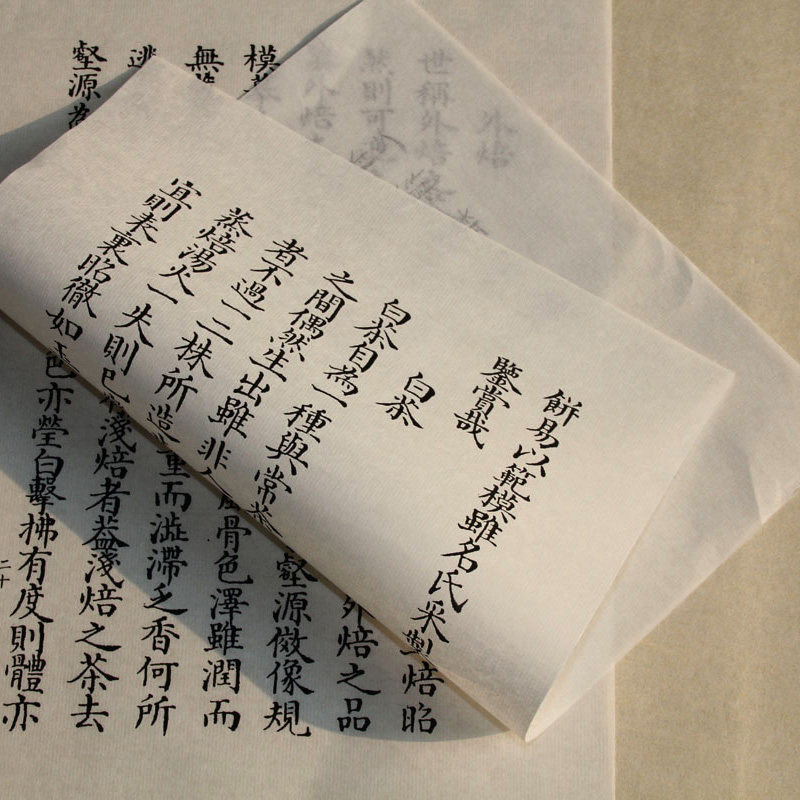 外焙
世稱外焙
然則可
外焙
餅易以範模雖名氏采製
鑒賞哉
白茶
白茶自為一種與常茶
之間偶然生出雖非人
者不過一二株所造
蒸焙湯火一失則已
宜則表裏昭徹如
焙昭
外焙之品
模
壑源倣像規
無
骨色澤雖潤而
逃
重而澁滯乏香何所
壑源為
淺焙者葢淺焙之茶去
色亦瑩白擊拂有度則體亦
二十